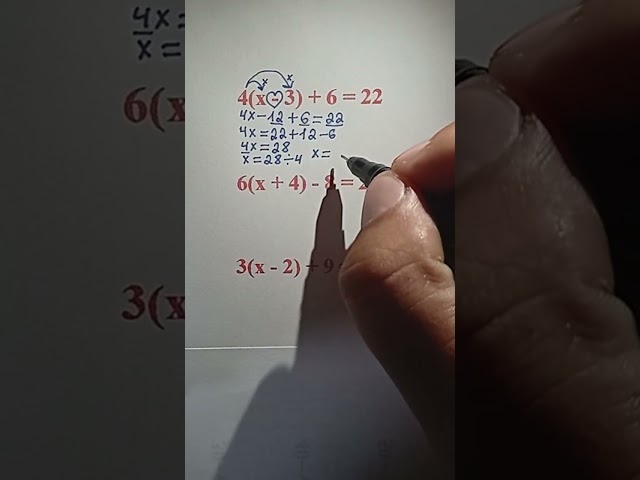 4(x - 3) + 6 = 22
4x - 12 + 6 = 22
4x = 22 + 12 - 6
4x = 28
x = 28 ÷ 4 x =
6(x + 4) - 8 =
3(x - 2) + 9